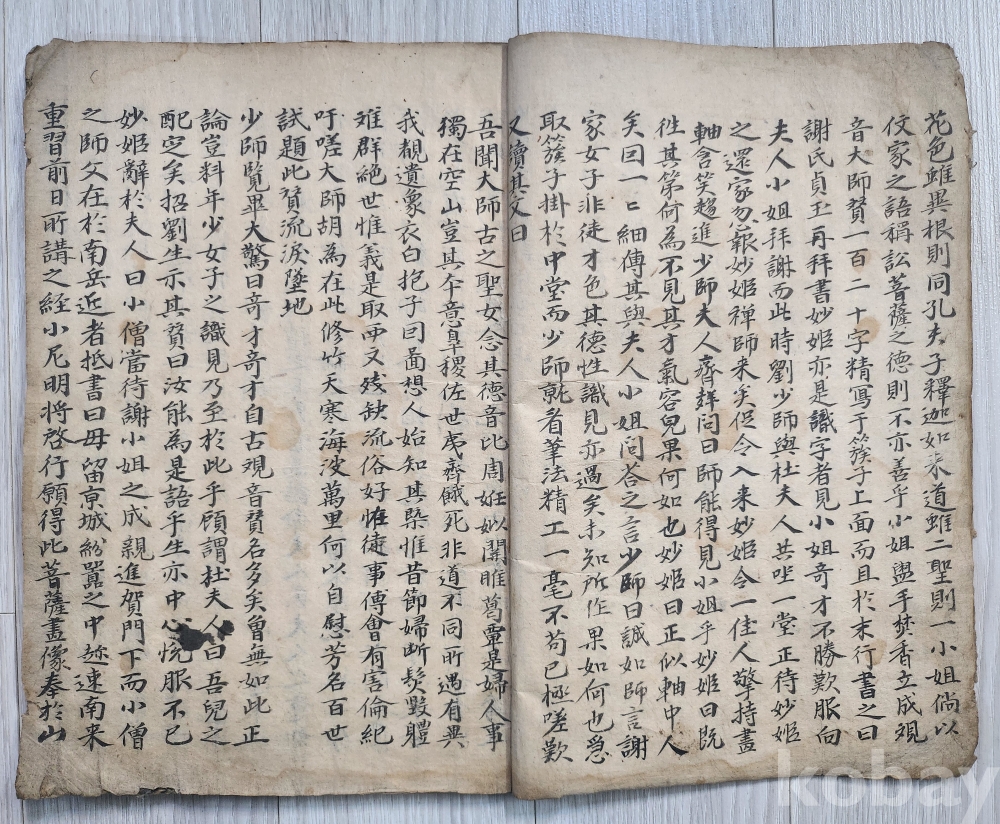 花色雖異根則同孔夫子釋迦如來道雖二聖則一小姐倘以
仗家之語稱訟菩薩之德則不亦善乎小姐盥手焚香立成覌
音大師賛一百二十字精寫于簇子上面而且於末行書之曰
謝氏貞玉再拜書妙姬亦是識字者見小姐奇才不勝歎服向
夫人小姐拜謝而此時劉少師與杜夫人共坐一堂正待妙姬
之還家忽報妙姬禪師来矣促令入来妙姬令一佳人擎持畫
軸含笑趨進少師夫人齊聲问曰師能得見小姐乎妙姬曰旣
徃其第何為不見其才氣容皃果何如也妙姬曰正似軸中人
矣曰一〻細傳其與夫人小姐问答之言少師曰誠如師言謝
家女子非徒才色其德性識見亦過矣未知所作果如何也急
取簇子掛於中堂而少師就看筆法精工一毫不苟已極嗟歎
又讀其文曰
吾聞大師古之聖女念其德音比周妊姒關睢葛覃是婦人事
獨在空山豈其本意皐稷佐世夷齊餓死非道不同所遇有異
我覩遺象衣白抱子曰啚想人始知其槩惟昔節婦断髮毀軆
难群絶世惟義是取西文残缺流俗好恠徒事傅會有害倫紀
吁嗟大師胡為在此修竹天寒海波萬里何以自慰芳名百世
試題此賛流淚墜地
少師覧畢大驚曰奇才奇才自古覌音賛名多矣曾無如此正
論豈料年少女子之識見乃至於此乎顧謂杜夫人曰吾兒之
配定矣招劉生示其賛曰汝能為是語乎生亦中心悅服不已
妙姬辭於夫人曰小僧當待謝小姐之成親進賀門下而小僧
之師父在於南岳近者抵書曰毋留京城紛嚣之中趂速南来
重習前日所講之經小尼明將啓行願得此菩薩畫像奉於山
kobay